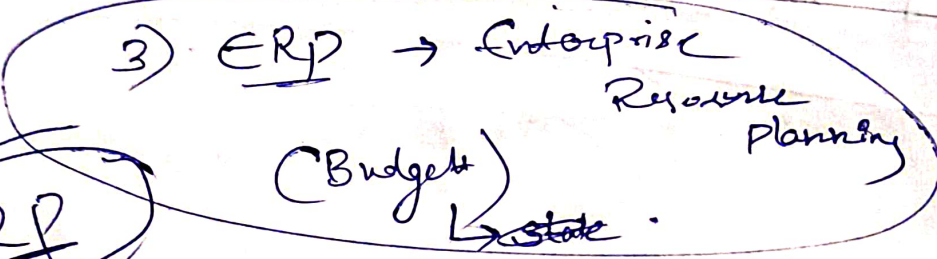 3) ERP → Enterprise
Resource
Planning
(Budget)
↳ state